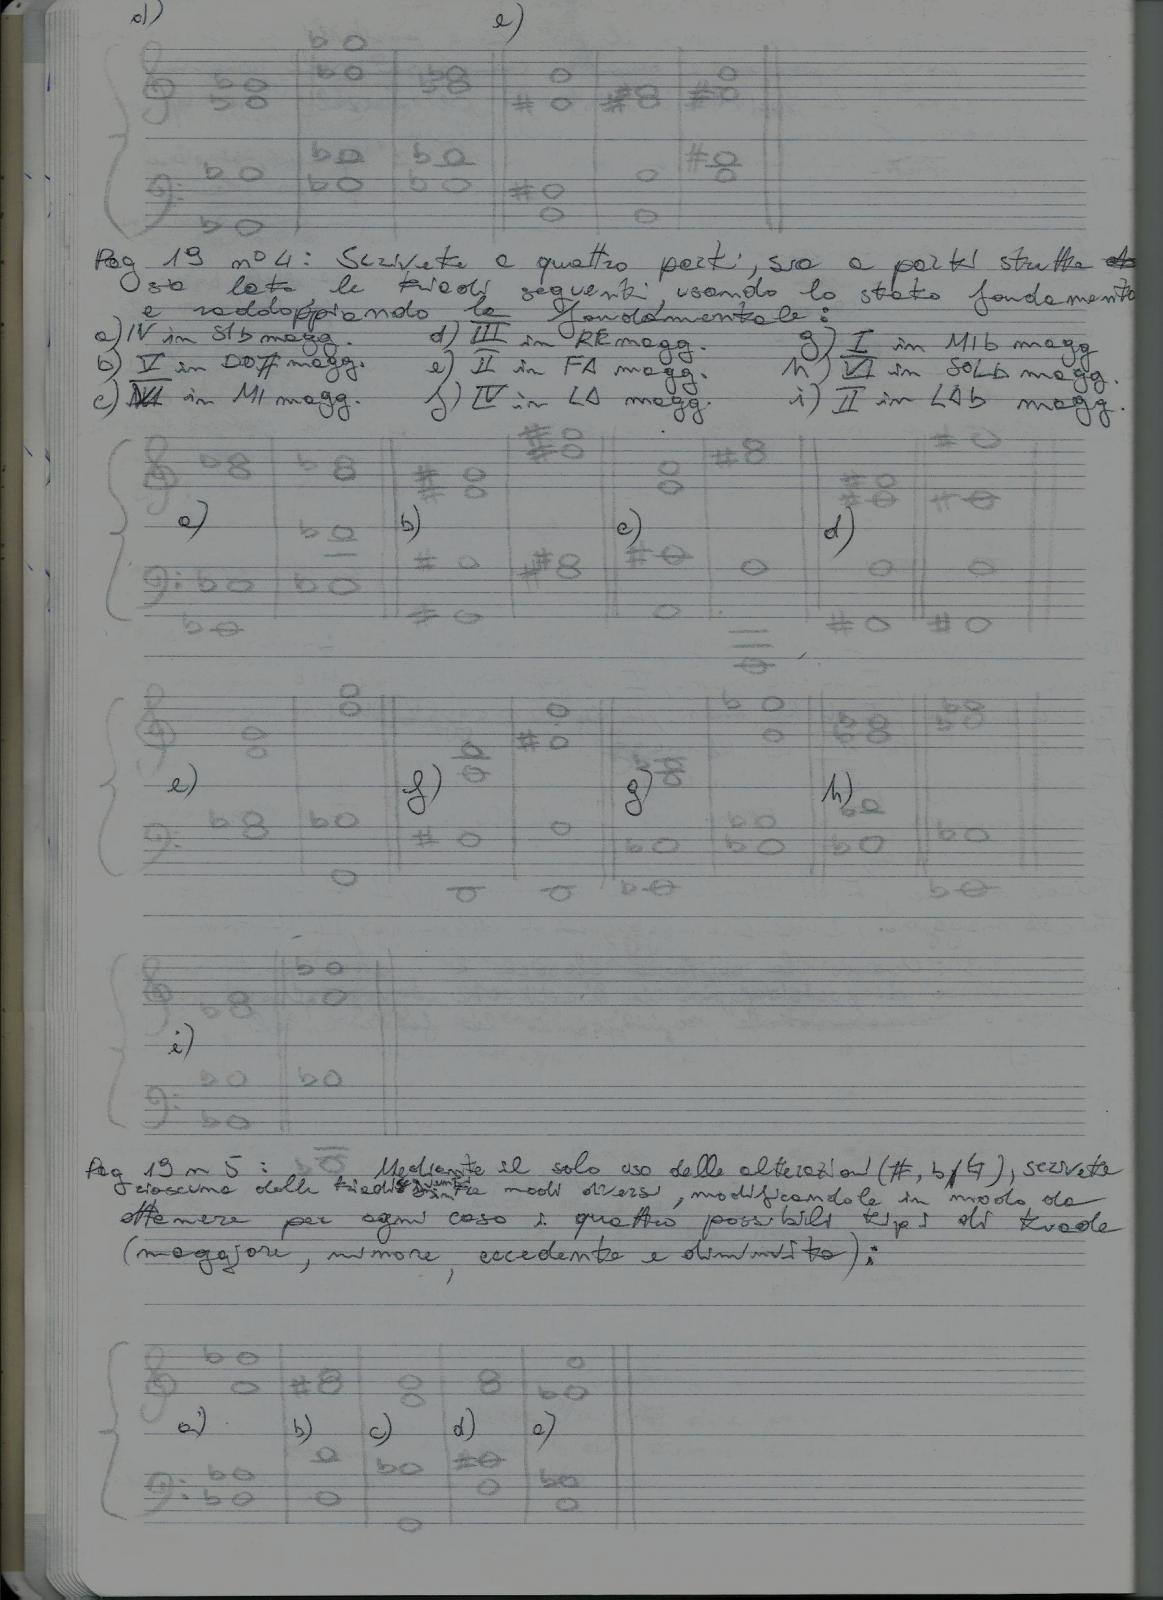 d) e)
Pag 19 n° 4: Scrivete a quattro parti, sia a parti strette
sia late le triadi seguenti, usando lo stato fondamenta
e raddoppiando la fondamentale:
a) IV in SIb magg. d) III in RE magg. g) I in MIb magg
b) V in DO# magg. e) II in FA magg. h) VI in SOLb magg.
c) VI in MI magg. f) IV in LA magg. i) II in LAb magg.
a) b) c) d)
e) f) g) h)
i)
Pag 19 n 5: Mediante il solo uso delle alterazioni (#, b, ♮), scrivete
ciascuna delle triadi seguenti in modi diversi, modificandole in modo da
ottenere per ogni caso i quattro possibili tipi di triade
(maggiore, minore, eccedente e diminuita):
a) b) c) d) e)